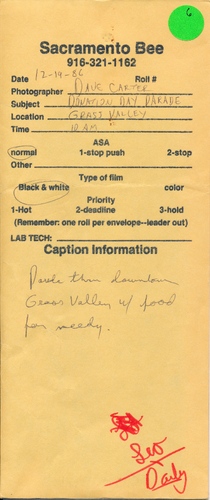 6
Sacramento Bee
916-321-1162
Date 12-14-86 Roll #
Photographer DAVE CARTER
Subject DONATION DAY PARADE
Location GRASS VALLEY
Time 10 AM
ASA
normal 1-stop push 2-stop
Other
Type of film
Black & white color
Priority
1-Hot 2-deadline 3-hold
(Remember: one roll per envelope--leader out)
LAB TECH:
Caption Information
Parade thru downtown
Grass Valley w/ food
for needy.